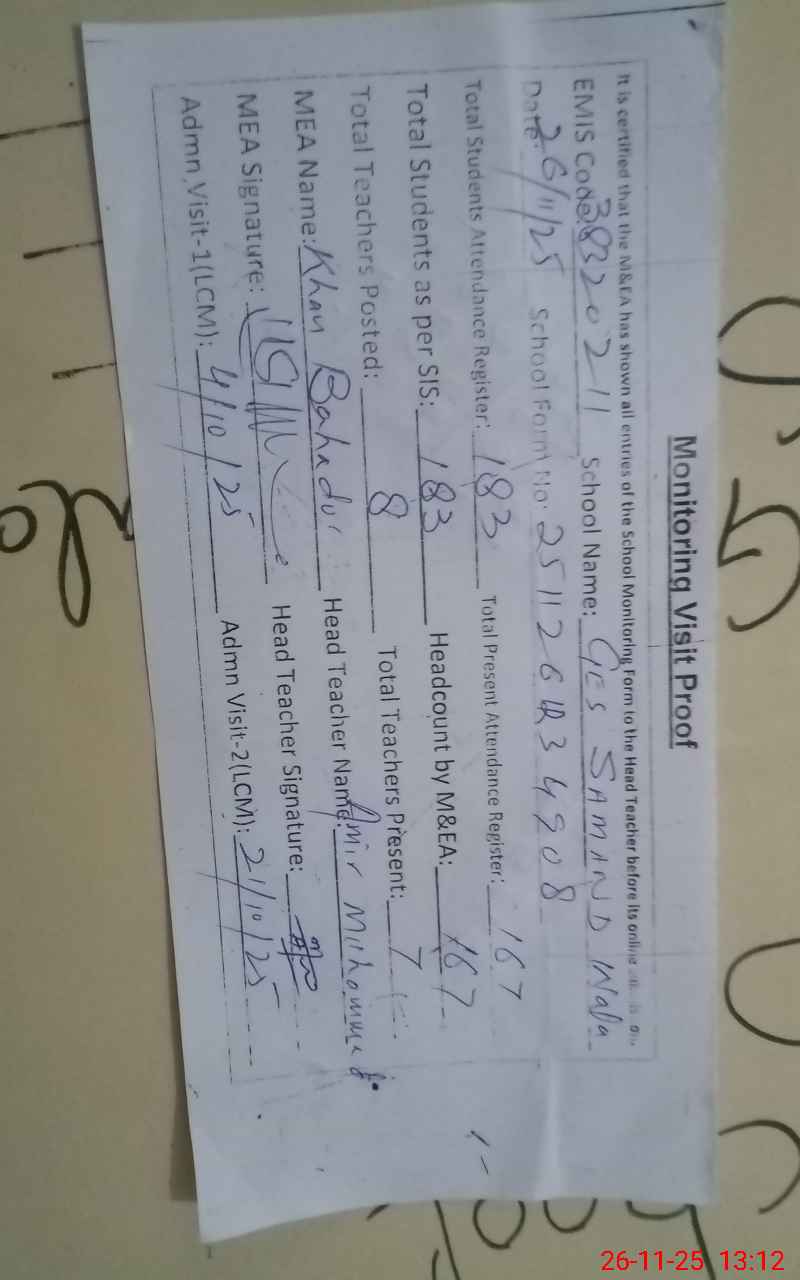 Monitoring Visit Proof
It is certified that the M&EA has shown all entries of the School Monitoring Form to the Head Teacher before its online
EMIS Code: 38320211 School Name: GES SAMAND Wala
Date: 26/11/25 School Form No: 251126 34908
Total Students Attendance Register: 183 Total Present Attendance Register: 167
Total Students as per SIS: 183 Headcount by M&EA: 167
Total Teachers Posted: 8 Total Teachers Present: 7
MEA Name: Khan Bahadur Head Teacher Name: Amir Muhammad
MEA Signature: Head Teacher Signature:
Admn Visit-1(LCM): 4/10/25 Admn Visit-2(LCM): 21/10/25
26-11-25 13:12